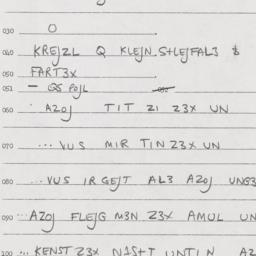 030 O
040 KREJZL Q KLEJN S+LEJFAL3 $
050 FART3X
051 — QS POJL
060 AZOJ TIT ZI Z3X UN
070 ... VUS MIR TIN Z3X UN
080 ... VUS IR GEJT AL3 AZOJ UNG3
090 ... AZOJ FLEJG M3N Z3X AMUL UN
100 ... KENST Z3X NIS+T UNTIN AZ